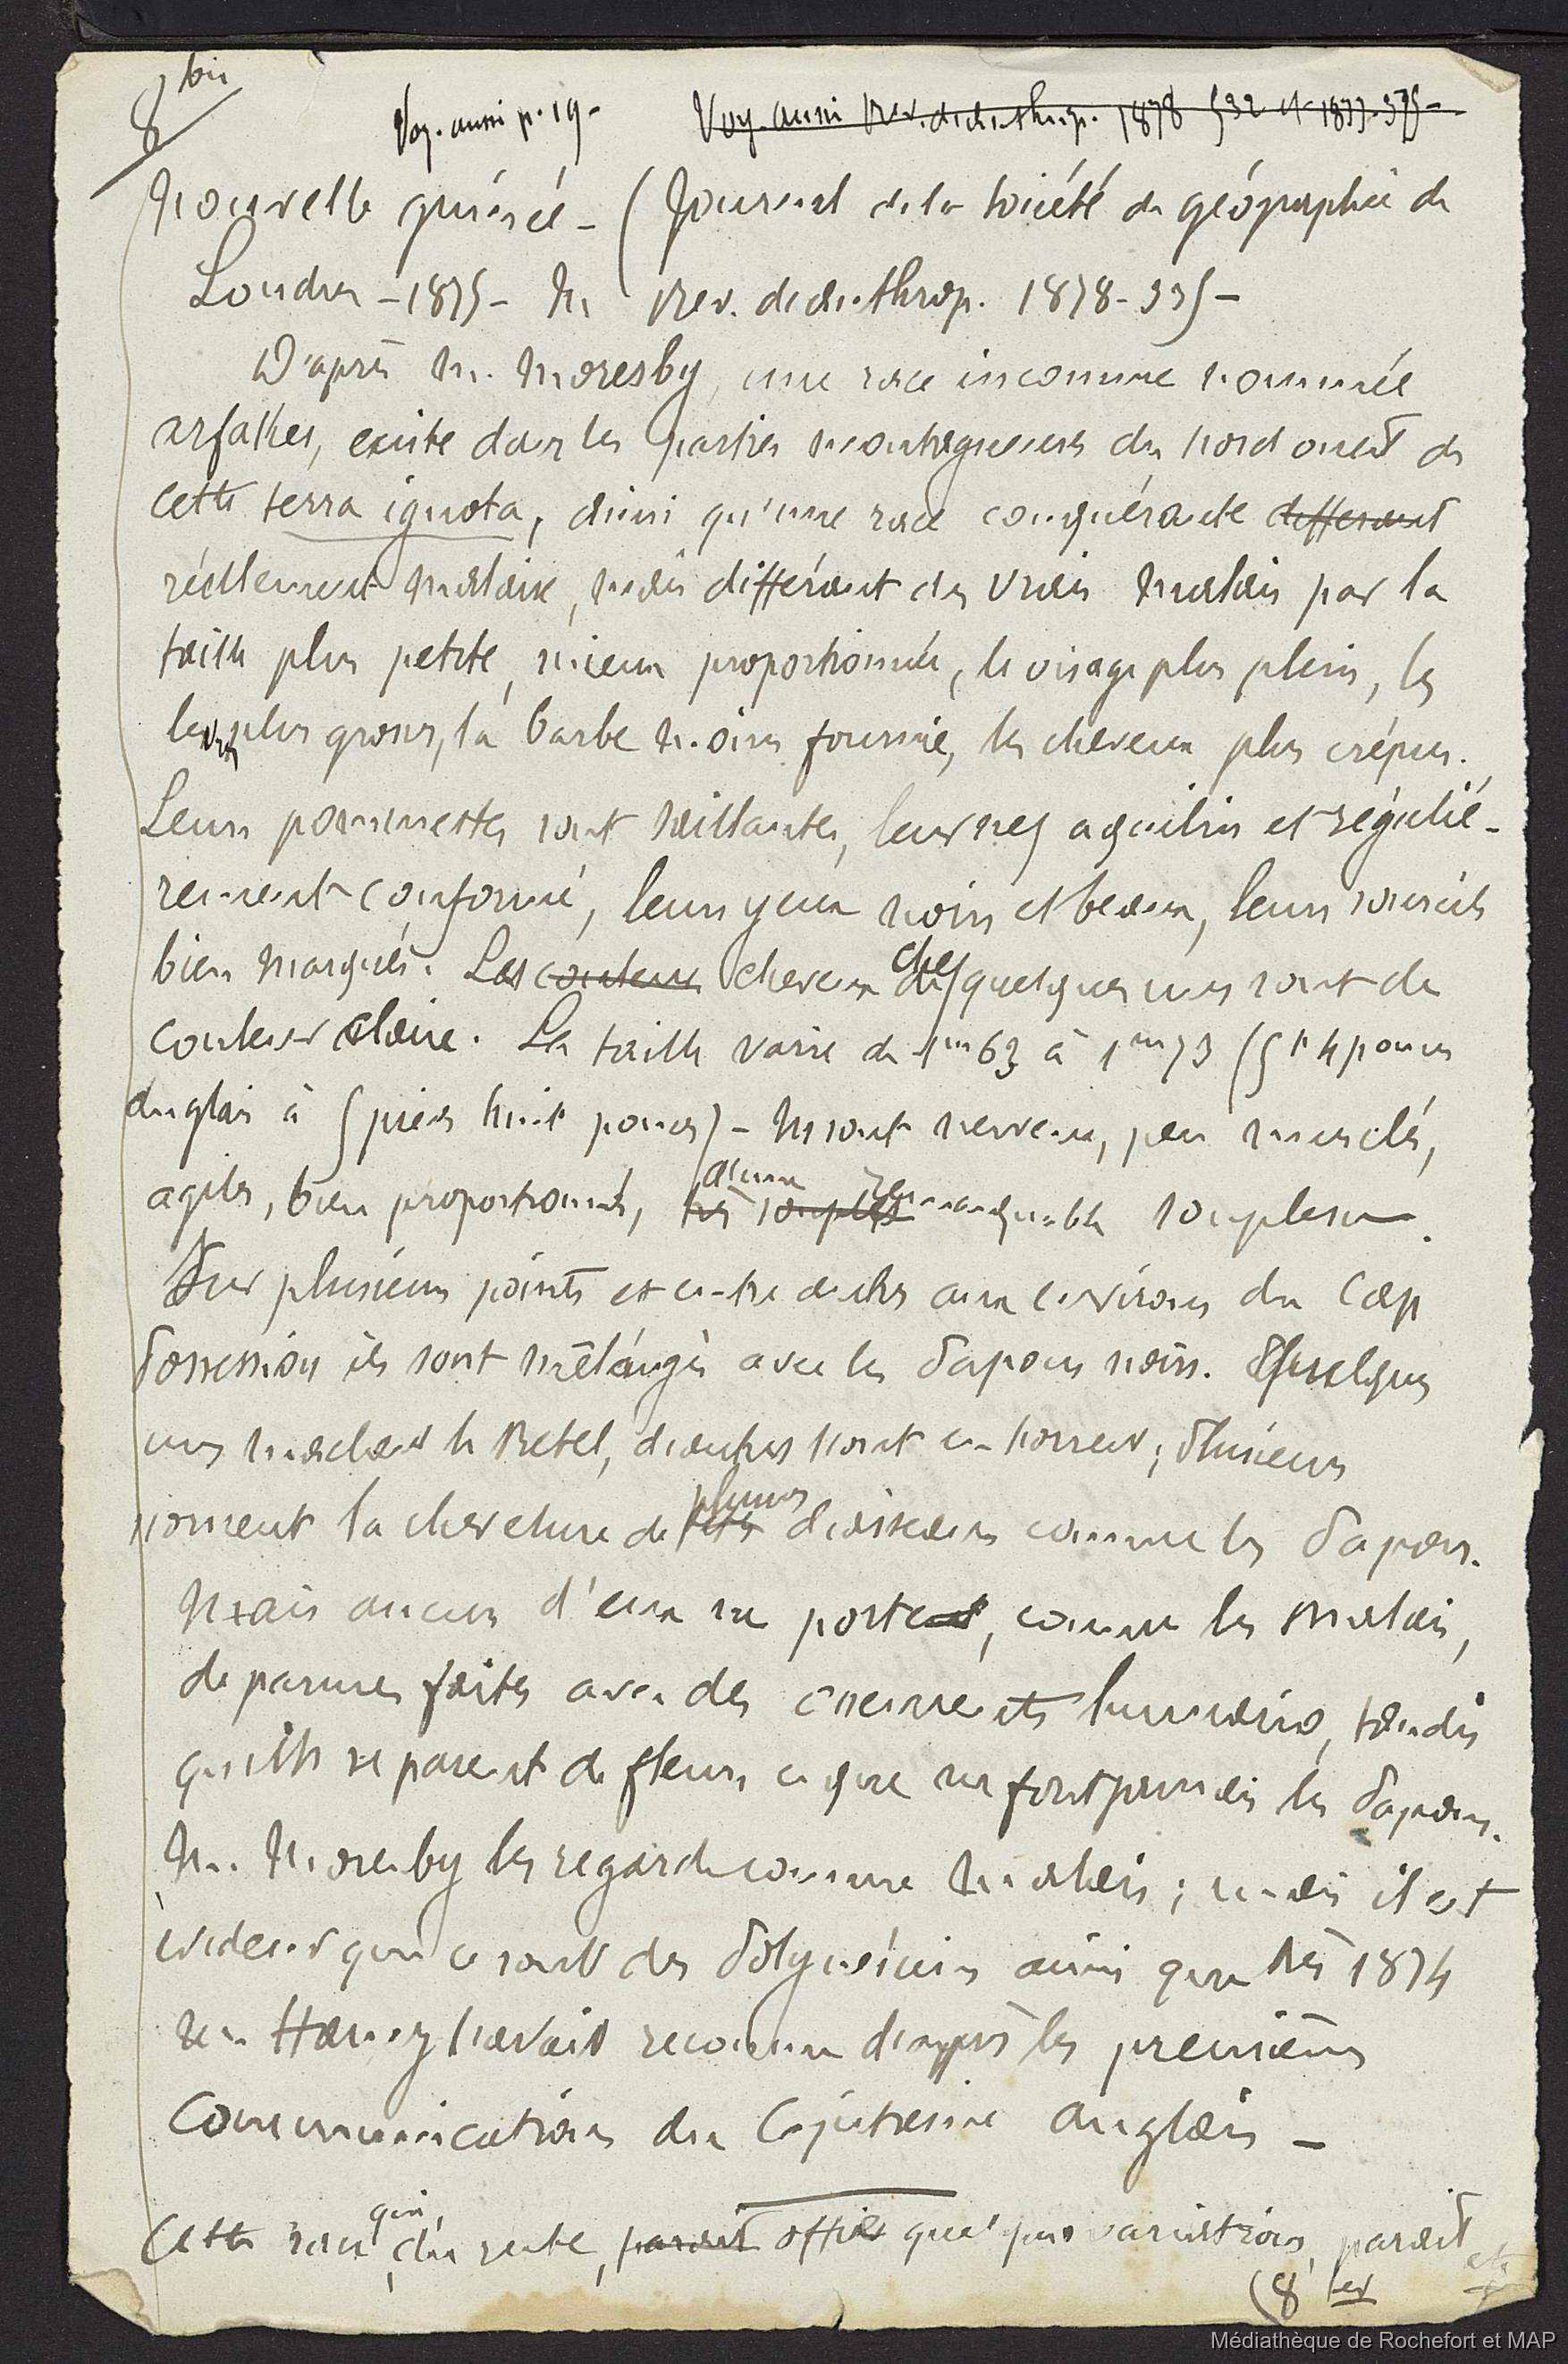 8 bis
Voy. aussi p. 19 - Voy. aussi Rev. d'anthrop. 1878 532 et 1877. 375 -
Nouvelle guinée - (Journal de la société de géographie de
Londres - 1875 - in Rev. d'anthrop. 1878 - 335 -
D'après M. Moresby, une race inconnue nommée
arfakes, existe dans les parties montagneuses du nord ouest de
cette terra ignota, ainsi qu'une race conquérante differant
réellement malaise, mais différant des vrais malais par la
taille plus petite, mieux proportionnée, le visage plus plein, les
levres plus grosses, la barbe moins fournie, les cheveux plus crépus.
Leurs pommettes sont saillantes, leur nez aquilin et réguliè-
rement conformé, leurs yeux noirs et beaux, leurs sourcils
bien marqués. Les couleur cheveux chez quelques uns sont de
couleur claire. La taille varie de 1m 63 à 1m 73 (5 p 4 pouces
anglais à 5 pieds huit pouces) - Ils sont nerveux, peu musclés,
agiles, bien proportionnés, très souples d'une remarquable souplesse.
Sur plusieurs points et entre autres aux environs du Cap
Possession ils sont mélangés avec les Papous noirs. Quelques
uns machent le Betel, d'autres l'ont en horreur; Plusieurs
ornent la chevelure de plumes d'oiseaux comme les Papous.
Mais aucun d'eux ne porte, comme les malais,
de parures faites avec des ossements humains, tandis
qu'ils se parent de fleurs ce que ne font jamais les Papous.
M. Moresby les regarde comme Malais; mais il est
évident que ce sont des Polynésiens ainsi que dès 1874
M. Hamy l'avait reconnu d'après les premières
communications du Capitaine anglais -
Cette race qui, du reste, parait offre quelques variations, parait
(8 ter
Médiathèque de Rochefort et MAP